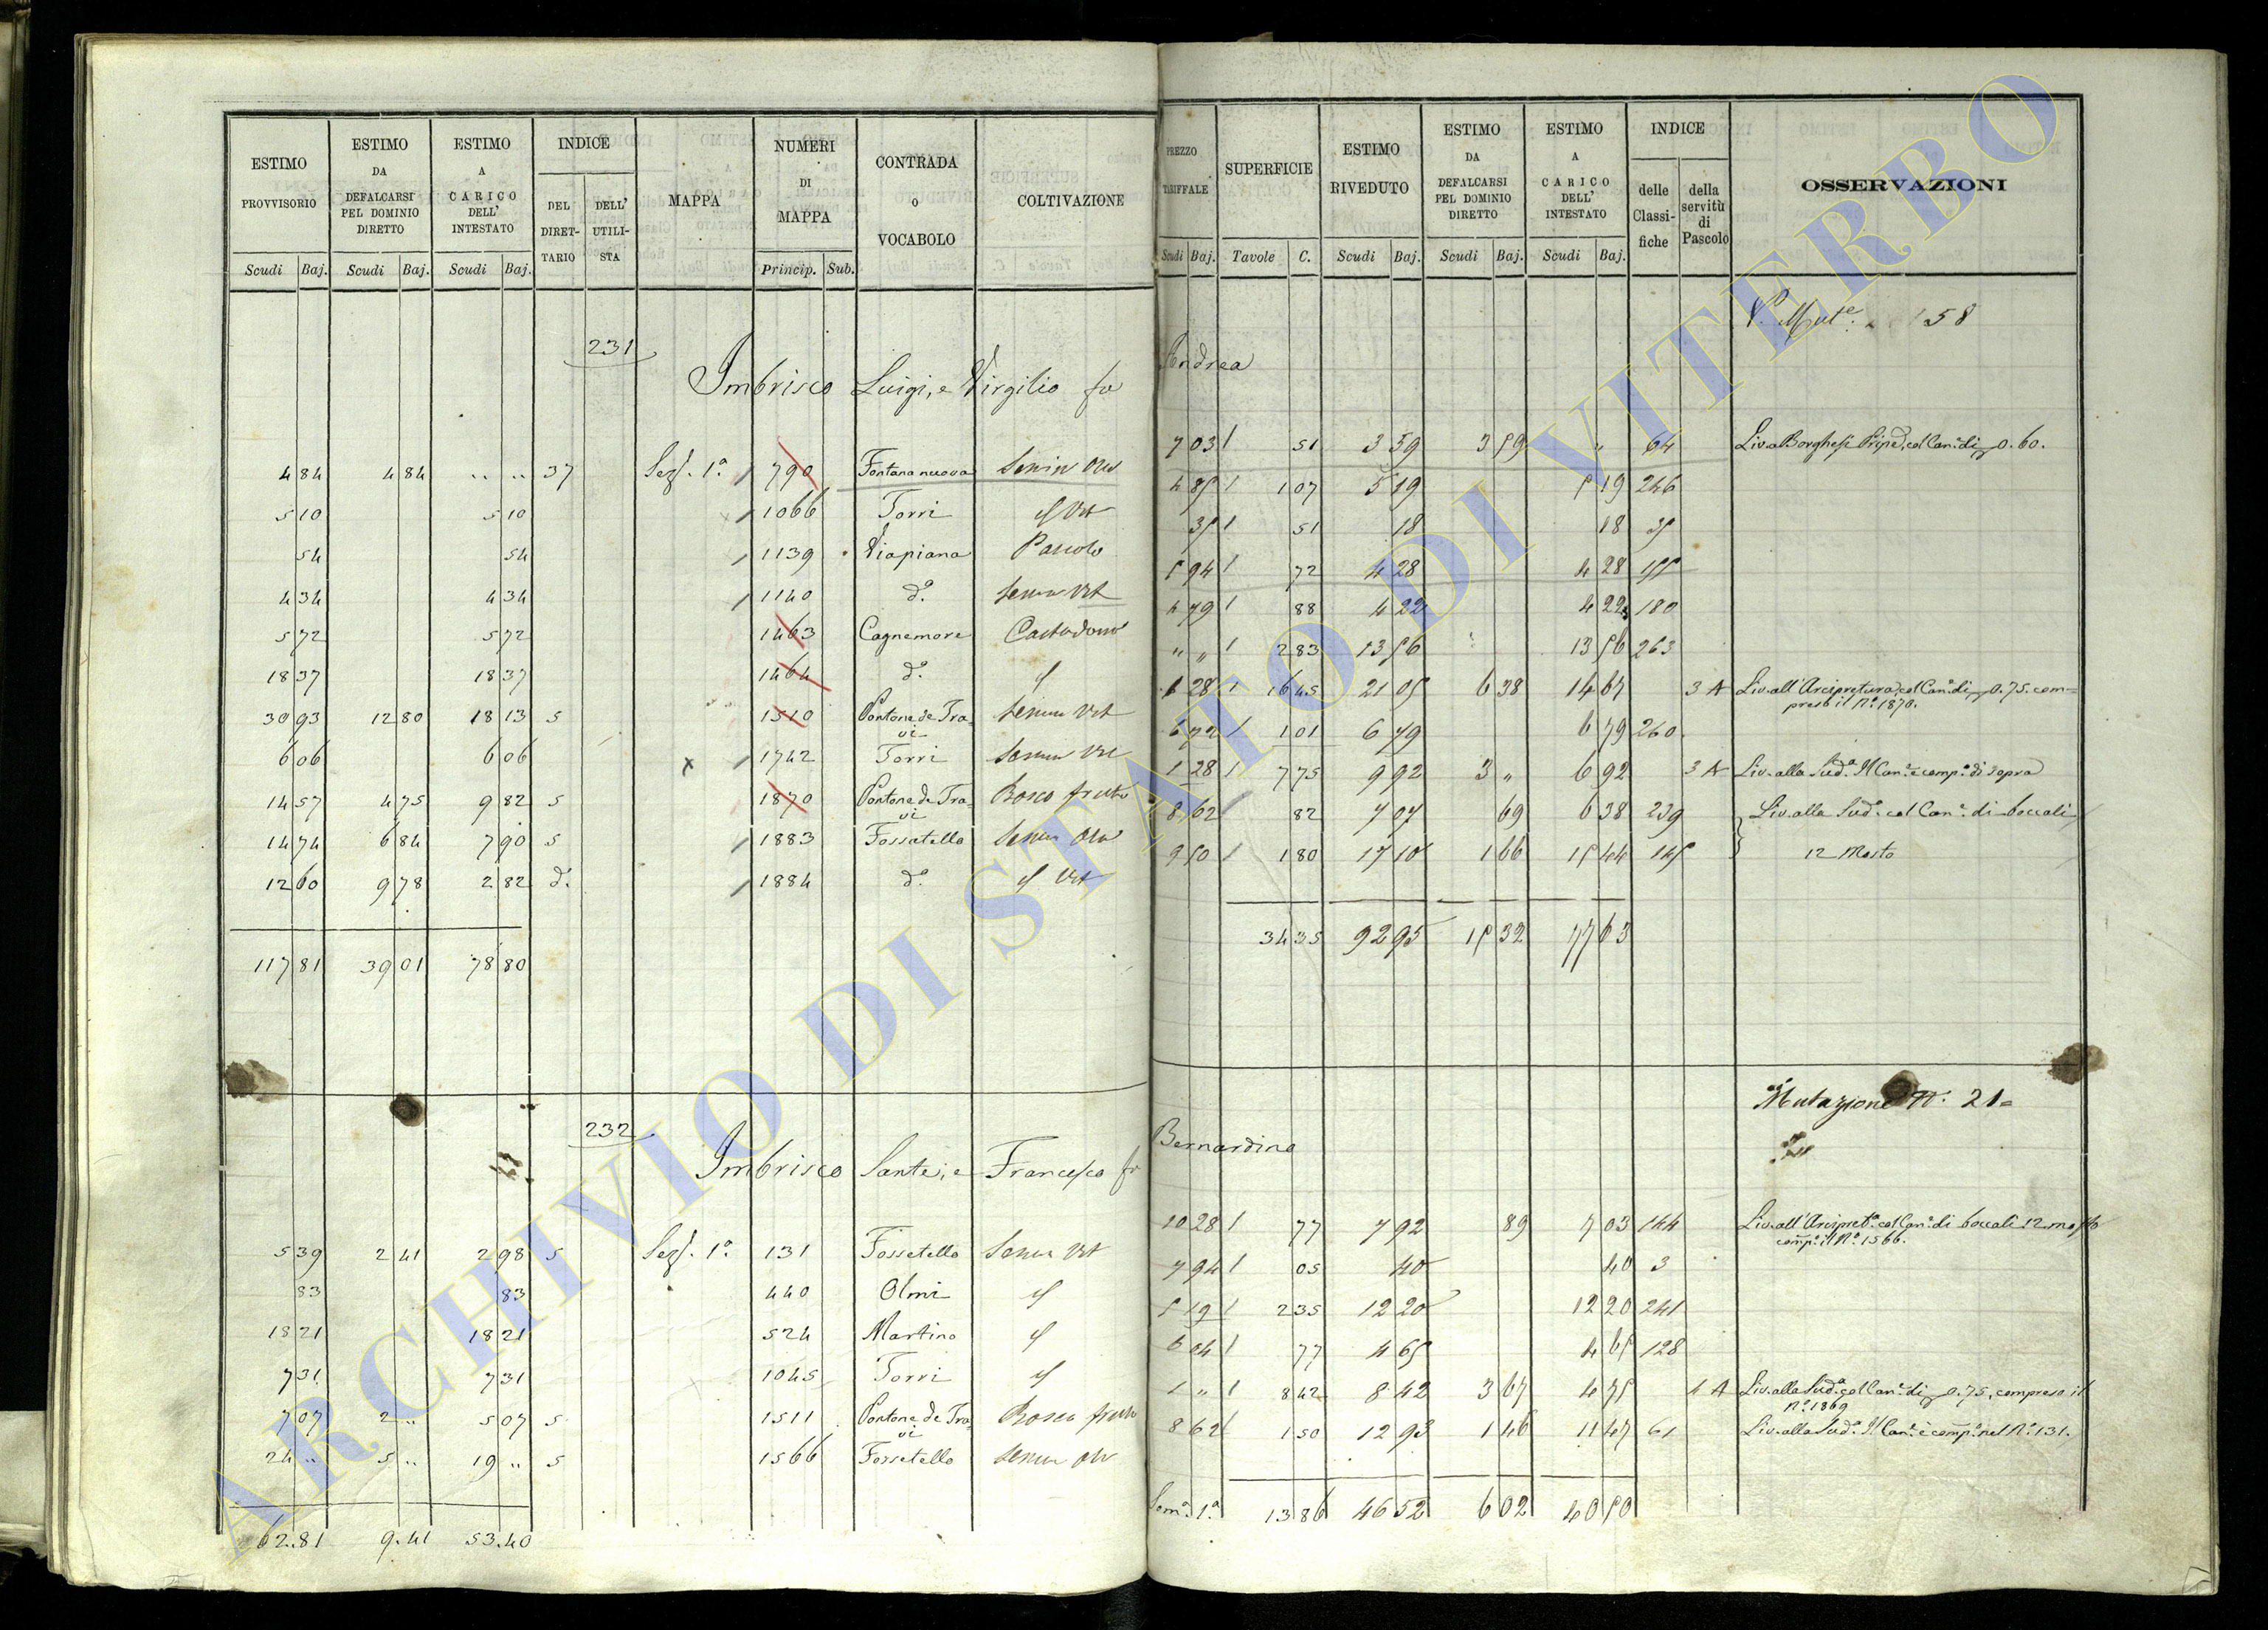 ESTIMO PROVVISORIO | ESTIMO DA DEFALCARSI PEL DOMINIO DIRETTO | ESTIMO A CARICO DELL' INTESTATO | INDICE DEL DIRETTARIO | DELL' UTILISTA | MAPPA | NUMERI DI MAPPA | CONTRADA O VOCABOLO | COLTIVAZIONE | PREZZO TARIFFALE | SUPERFICIE | ESTIMO RIVEDUTO | ESTIMO DA DEFALCARSI PEL DOMINIO DIRETTO | ESTIMO A CARICO DELL' INTESTATO | INDICE delle Classifiche | della servitù di Pascolo | OSSERVAZIONI
Scudi Baj. | Scudi Baj. | Scudi Baj. | Princip. Sub. | Scudi Baj. | Tavole C. | Scudi Baj. | Scudi Baj. | Scudi Baj.
158
231
Imbrisco Luigi, e Virgilio fu Andrea
4 84 | 4 84 | .. .. | 37 | Sez. 1a. | 790 | Fontana nuova | Semin Oliv | 7 03 | 51 | 3 59 | 3 59 | " | 64 | Liv. a Borghesi Pripe. col Can. di 0.60.
5 10 | 5 10 | 1066 | Torri | Vit | 4 85 | 1 07 | 5 19 | 5 19 | 246
54 | 54 | 1139 | Viapiana | Pascolo | 35 | 51 | 18 | 18 | 35
4 34 | 4 34 | 1140 | do. | Semin Vit | 5 94 | 72 | 4 28 | 4 28 | 155
5 72 | 5 72 | 1463 | Cagnemore | 4 79 | 88 | 4 22 | 4 22 | 180
18 37 | 18 37 | 1464 | do. | " " | 2 83 | 13 56 | 13 56 | 263
30 93 | 12 80 | 18 13 | 5 | 1510 | Pontone de Travi | Semin Vit | 1 28 | 16 45 | 21 05 | 6 38 | 14 67 | 3 A | Liv. all'Arcipretura, col Can. di 0.75. compreso il No. 1870.
6 06 | 6 06 | x | 1742 | Torri | Semin Vit | 6 72 | 1 01 | 6 79 | 6 79 | 260
14 57 | 4 75 | 9 82 | 5 | 1870 | Pontone de Travi | Bosco frutto | 1 28 | 7 75 | 9 92 | 3 " | 6 92 | 3 A | Liv. alla Suda. Il Can. è comp. di Sopra
14 74 | 6 84 | 7 90 | 5 | 1883 | Fossatello | Semin Oliv | 8 62 | 82 | 7 07 | 69 | 6 38 | 239 | Liv. alla Suda. col Can. di boccali
12 60 | 9 78 | 2 82 | do. | 1884 | do. | Vit | 9 50 | 1 80 | 17 10 | 1 66 | 15 44 | 145 | 12 Mosto
117 81 | 39 01 | 78 80 | 34 35 | 92 95 | 15 32 | 77 63
Mutazione N. 21=
232
Imbrisco Sante, e Francesco fu Bernardino
5 39 | 2 41 | 2 98 | 5 | Sez. 1a. | 131 | Fossatello | Semin Vit | 10 28 | 77 | 7 92 | 89 | 7 03 | 144 | Liv. all'Arcipreta. col Can. di boccali 12 mosto comp. il No. 1566.
83 | 83 | 440 | Olmi | 7 94 | 05 | 40 | 40 | 3
18 21 | 18 21 | 524 | Martino | 5 19 | 2 35 | 12 20 | 12 20 | 241
7 31 | 7 31 | 1045 | Torri | 6 04 | 77 | 4 65 | 4 65 | 128
7 07 | 2 .. | 5 07 | 5 | 1511 | Pontone de Travi | Bosco frutto | 1 " | 8 42 | 8 42 | 3 67 | 4 75 | 4 A | Liv. alla Suda. col Can. di 0.75, compreso il No. 1869
24 .. | 5 .. | 19 .. | 5 | 1566 | Fossatello | Semin Oliv | 8 62 | 1 50 | 12 93 | 1 46 | 11 47 | 61 | Liv. alla Suda. Il Can. è comp. nel No. 131.
62.81 | 9.41 | 53.40 | Som. 1a. | 13 86 | 46 52 | 6 02 | 40 50
ARCHIVIO DI STATO DI VITERBO